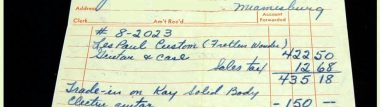 Address Miamisburg
Clerk Am't Rec'd. Account Forwarded
# 8-2023
Les Paul Custom (Fretless Wonder)
Guitar & case 422 50
Sales tax 12 68
435 18
Trade-in on Kay Solid Body
Electric guitar -150 —